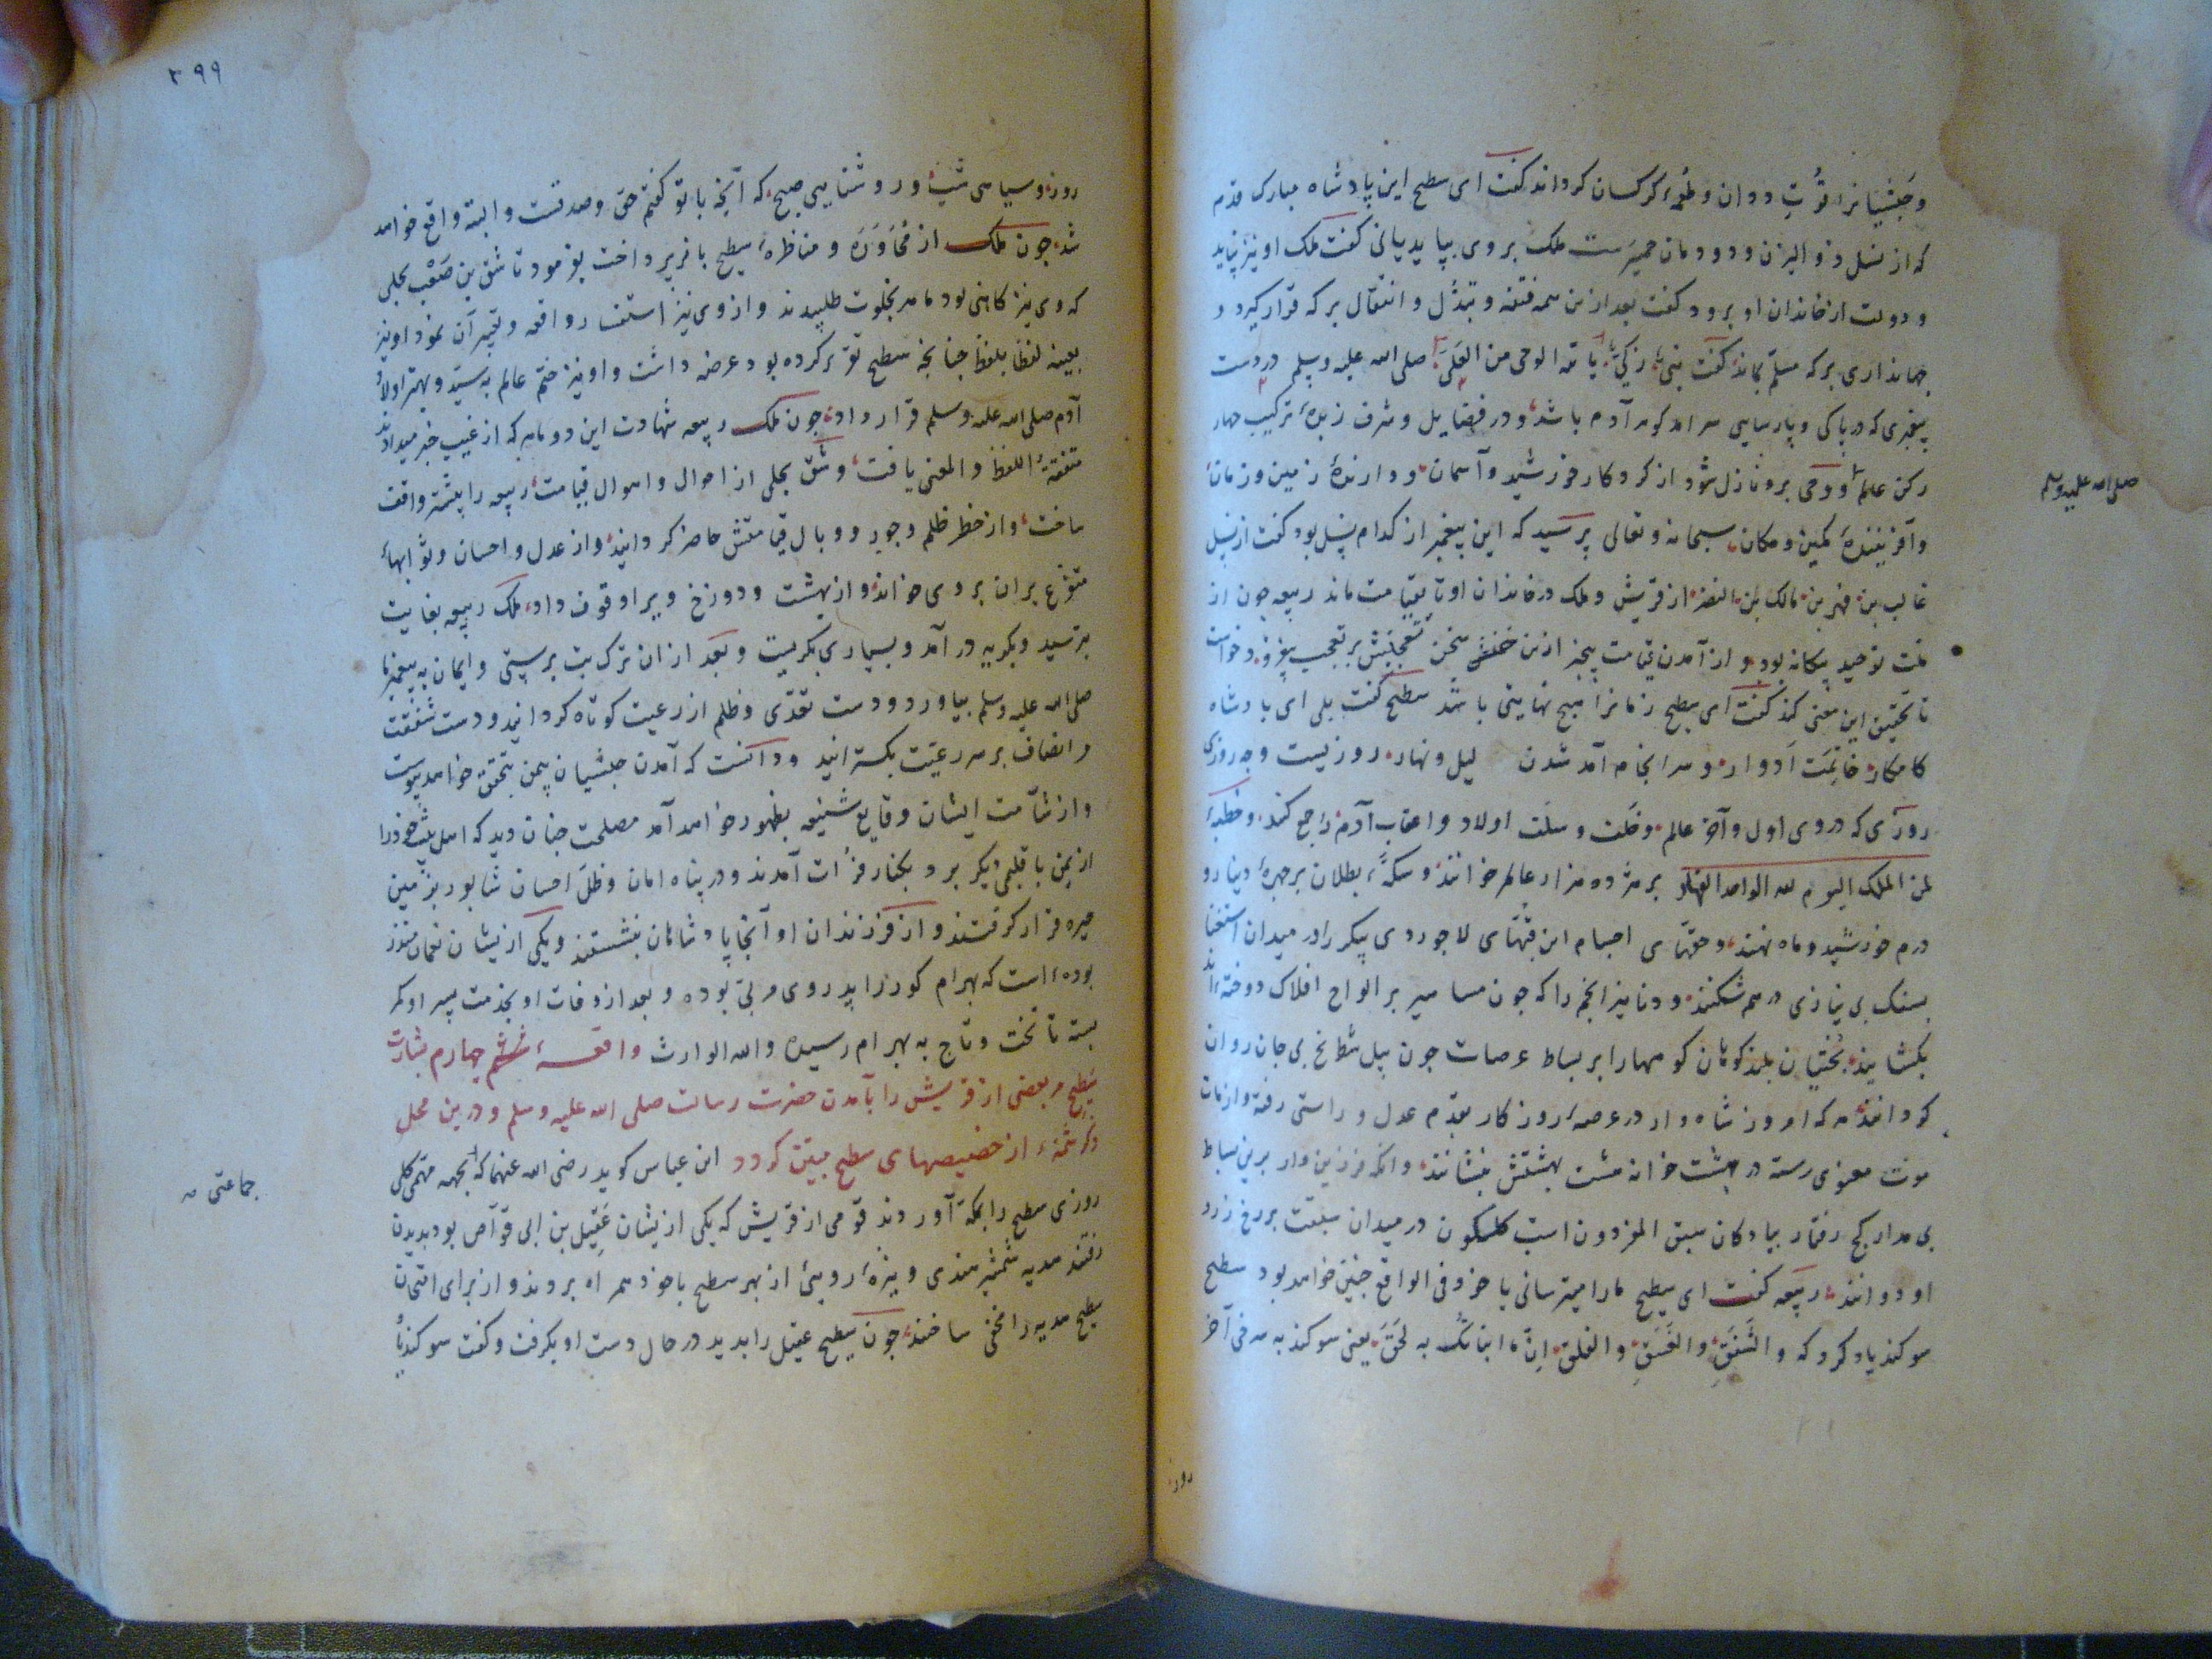 و حبشیانرا قوّتِ ددان و طُعمهٔ کرکسان کرداند کفت ای سطیح این پادشاه مبارک قدم
که از نسل ذو الیزن و دودمان حمیرست ملک بر وی بپاید یانی کفت ملک او نیز نپاید
و دولت از خاندان او برود کفت بعد ازین همه فتنه و تبدّل و انتقال بر که قرار کیرد و
جهانداری بر که مسلّم بماند کفت نبیّ زکیّ یاتیه الوحی من العلیّ صلی الله علیه وسلم در دست
پیغبری که در پاکی و پارسایی سرامد کوهر آدم باشد و در فضایل و شرف زبدهٔ ترکیب چهار
رکن عالم و وحی برو نازل شود از کردکار خورشید و آسمان و دارندهٔ زمین و زمان
صلی الله علیه وسلم
و آفرینندهٔ مکین و مکان سبحانه و تعالی پرسید که این پیغمبر از کدام نسل بود کفت از نسل
غالب بن فهر بن مالک بن النضر از قریش و ملک در خاندان او تا بقیامت ماند ربیعه چون از
ملت توحید بیکانه بود و از آمدن قیامت بیخبر ازین سخن تعجّبش بر تعجب بیفزود و خواست
تا تحقیق این معنی کند کفت ای سطیح زمانرا هیچ نهایتی باشد سطیح کفت بلی ای پادشاه
کامکار خاتمت اَدوار و سرانجام آمد شدن لیل و نهار روزیست و چه روزی
روزی که در وی اول و آخر عالم و خلف و سلف اولاد و اعقاب آدم را جمع کنند و خطبهٔ
لمن الملک الیوم لله الواحد القهار بر هژده هزار عالم خوانند و سکّهٔ بطلان بر چهرهٔ دینار و
درم خورشید و ماه نهند و حقّهای اجسام این قبّهای لاجوردی پیکر را در میدان استغنا
بسنک بی نیازی در هم شکنند و دنانیر انجم را که چون مسامیر بر الواح افلاک دوخته اند
بکشایند بُختیان بلند کوهان کوهها را بر بساط عرصات چون پیل شطرنج بی جان روان
کردانند هر که امروز شاه وار در عرصهٔ روزکار بقدم عدل و راستی رفته و از مات
موت معنوی رسته در هشت خانه هشت بهشتش بنشانند و انکه فرزین وار برین بساط
بی مدار کج رفتار پیادکان سبق المفردون اسب کلکون در میدان سبقت بر رخ زرد
او دوانند ربیعه کفت ای سطیح ما را میترسانی یا خود فی الواقع چنین خواهد بود سطیح
سوکند یاد کرد که و الشَفَقِ و الغَسَقِ و الفلق اِنّ ما انبأتک به لحَقّ یعنی سوکند به سرخی آخر
روز
۲۹۹
روز و سیاهی شب و روشنایی صبح که آنچه با تو کفتم حق و صدقست و البته واقع خواهد
شد چون ملک از مُحاوَرَه و مناظرهٔ سطیح باز پرداخت بفرمود تا شق بن صَعْب بجلی
که وی نیز کاهنی بود ماهر بخلوت طلبیدند و از وی نیز استفسار واقعه و تعبیر آن نمود او نیز
بعینه لفظ بلفظ چنانچه سطیح تقریر کرده بود عرضه داشت و او نیز ختم عالم به سیّد و بهتر اولاد
آدم صلی الله علیه وسلم قرار داد چون ملک ربیعه شهادت این دو ماهر که از غیب خبر میدادند
متفقة اللفظ و المعنی یافت و شق بجلی از احوال و اهوال قیامت ربیعه را بیشتر واقف
ساخت و از خطر ظلم و جور و وبال قیامتش حاضر کردانید و از عدل و احسان و ثوابهای
متفرّع بران بر وی خواند و از بهشت و دوزخ ویرا وقوف داد ملک ربیعه بغایت
بترسید و بکریه در آمد و بسیاری بکریست و بعد ازان ترک بت پرستی و ایمان به پیغمبر ما
صلی الله علیه وسلم بیاورد و دست تعدّی و ظلم از رعیت کوتاه کردانید و دست شفقت
و انصاف بر سر رعیّت بکسترانید و دانست که آمدن حبشیان بیمن بتحقق خواهد پیوست
و از شآمت ایشان وقایع شنیعه بظهور خواهد آمد مصلحت چنان دید که اهل بیت خود را
از یمن باقلیمی دیکر برد بکنار فرات آمدند و در پناه امان و ظلّ احسان شابور بزمین
حیره قرار کرفتند و از فرزندان او آنجا پادشاهان بنشستند و یکی ازیشان نعمان منذر
بوده است که بهرام کور را پدر وی مربّی بوده و بعد از وفات او بخدمت پسر او کمر
بسته تا تخت و تاج به بهرام رسیده والله الوارث واقعهٔ چهارم بشارت
سَطیح مر بعضی از قریش را بآمدن حضرت رسالت صلی الله علیه وسلم و درین محل
ذکر شمّهٔ از خصیصهای سطیح مبیّن کردد ابن عباس کوید رضی الله عنهما که بجهه مهمّی کلی
جماعتی
روزی سطیح را بمکه آوردند قومی از قریش که یکی ازیشان عَقیل بن ابی وقّاص بود بدیدن
رفتند هدیه شمشیر هندی و نیزهٔ ردینی از بهر سطیح با خود همراه بردند و از برای امتحان
سطیح هدیه را مخفی ساختند چون سطیح عقیل را بدید در حال دست او بکرفت و کفت سوکند